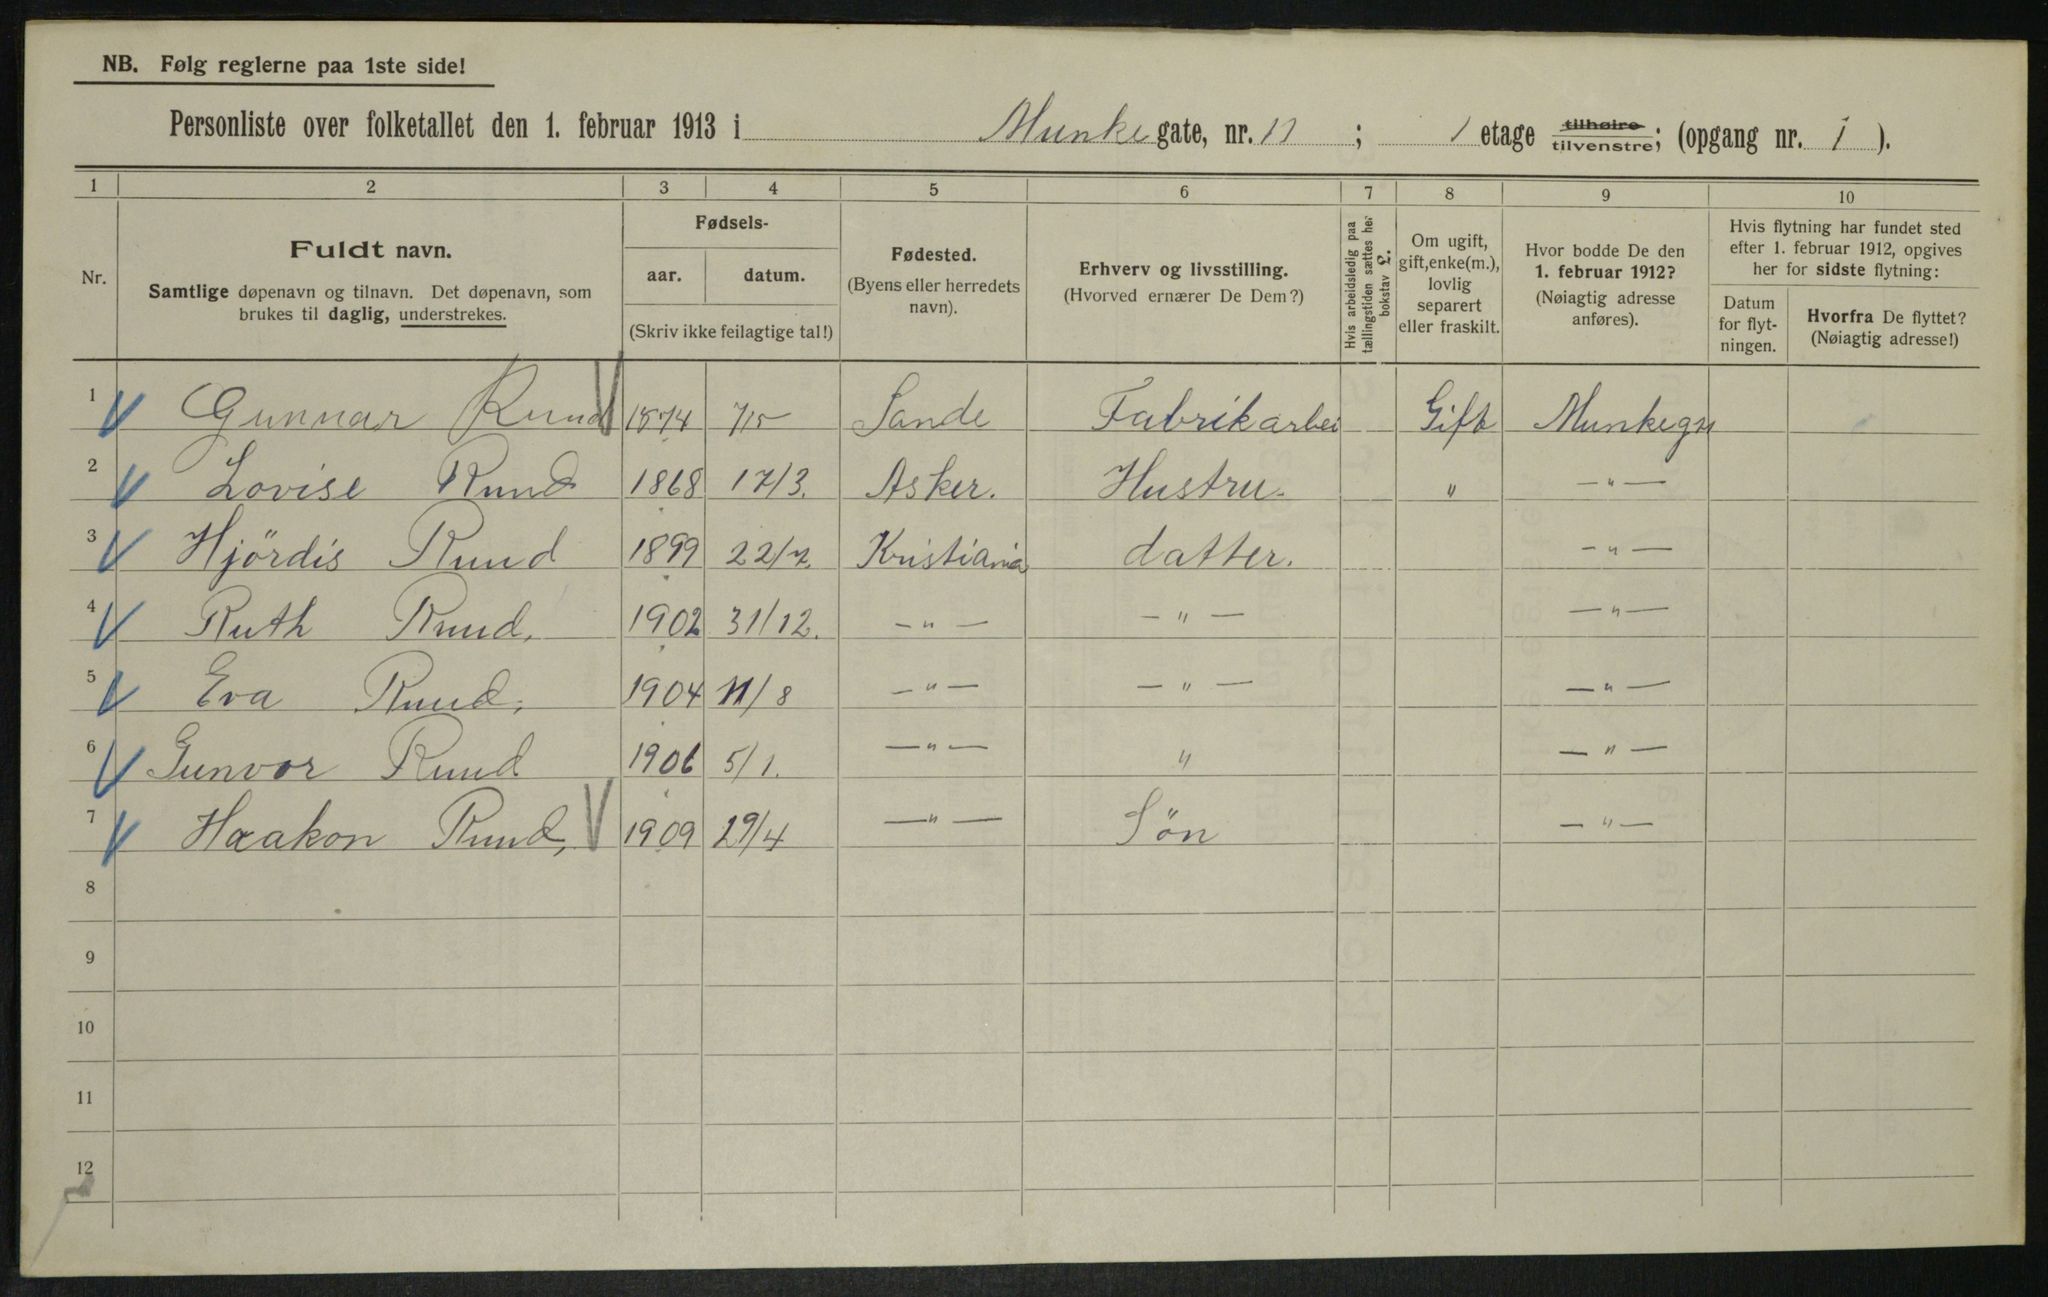 NB. Følg reglerne paa 1ste side!
Personliste over folketallet den 1. februar 1913 i Munke gate, nr. 11 ; 1 etage tilhøire tilvenstre; (opgang nr. 1 ).
1 2 3 4 5 6 7 8 9 10
Nr.
Fuldt navn.
Samtlige døpenavn og tilnavn. Det døpenavn, som
brukes til daglig, understrekes.
Fødsels-
aar. datum.
(Skriv ikke feilagtige tal!)
Fødested.
(Byens eller herredets
navn).
Erhverv og livsstilling.
(Hvorved ernærer De Dem?)
Hvis arbeidsledig paa
tællingstiden sættes her
bokstav L.
Om ugift,
gift, enke(m.),
lovlig
separert
eller fraskilt.
Hvor bodde De den
1. februar 1912?
(Nøiagtig adresse
anføres).
Hvis flytning har fundet sted
efter 1. februar 1912, opgives
her for sidste flytning:
Datum
for flyt-
ningen.
Hvorfra De flyttet?
(Nøiagtig adresse!)
1 Gunnar Ruud 1874 Sande Fabrikarbei Gift
2 Lovise Ruud 1868 17/3. Asker. Hustru. " —"—
3 Hjördis Ruud 1899 22/7. Kristiania datter. —"—
4 Ruth Ruud, 1902 31/12. —"— —"— —"—
5 Eva Ruud, 1904 11/8 —"— —"— —"—
6 Gunvor Ruud 1906 5/1. —"— " —"—
7 Haakon Ruud, 1909 29/4 —"— Søn —"—
8
9
10
11
12